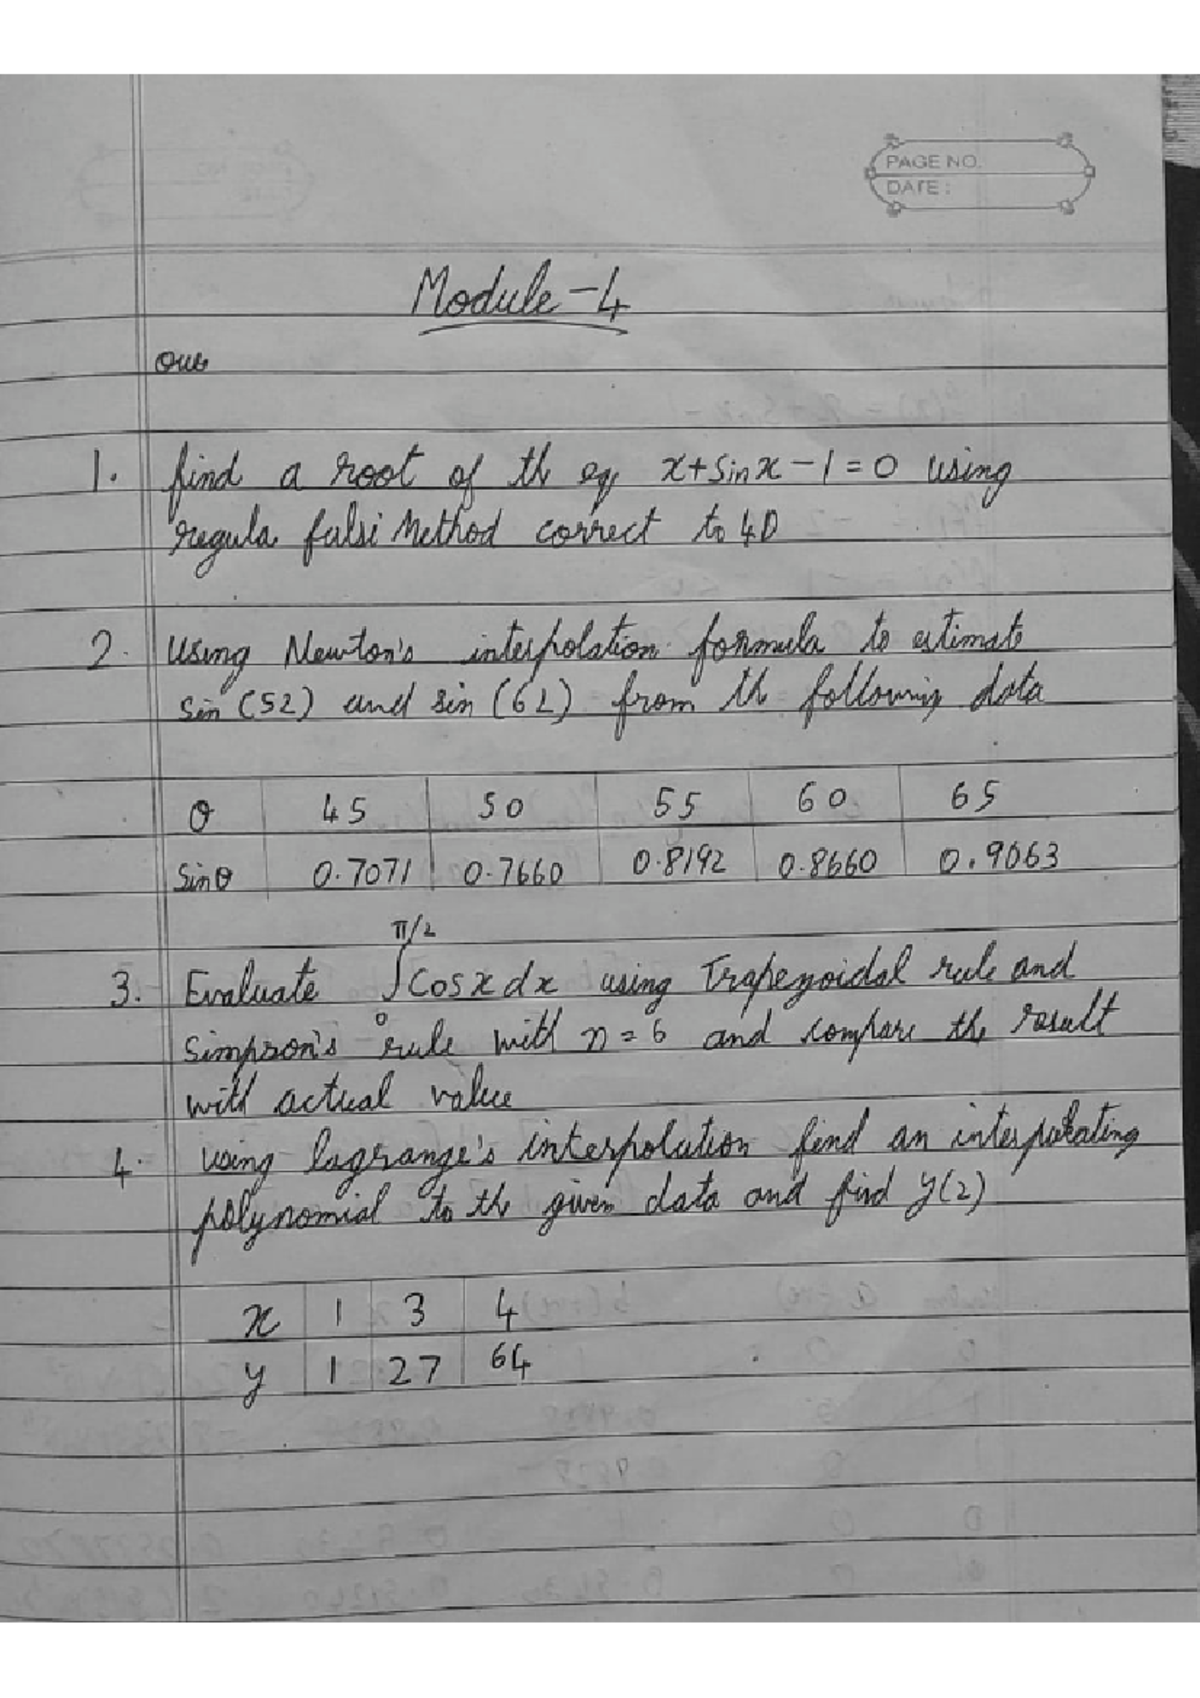 PAGE NO.
DATE :
Module - 4
Ques
1. find a root of th eq x + sin x - 1 = 0 using
regula falsi Method correct to 4D
2. Using Newton's interpolation formula to estimate
sin (52) and sin (62) from th following data
θ 45 50 55 60 65
Sinθ 0.7071 0.7660 0.8192 0.8660 0.9063
3. Evaluate ∫₀^π/2 Cos x dx using Trapezoidal rule and
Simpson's rule with n = 6 and compare the result
with actual value
4. using lagrange's interpolation find an interpolating
polynomial to th given data and find y(2)
x 1 3 4
y 1 27 64